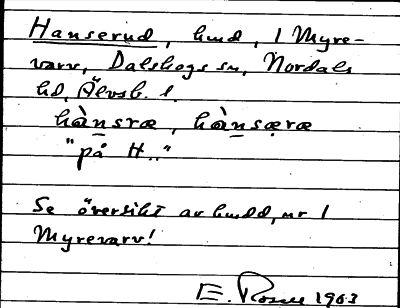 Hanserud, hmd, 1 Myre-
varv, Dalskogs sn, Nordals
hd, Älvsb. l.
hànsræ, hànsæræ
"på H.."
Se översikt av hmdd, nr 1
Myrevarv!
E. Rosell 1963